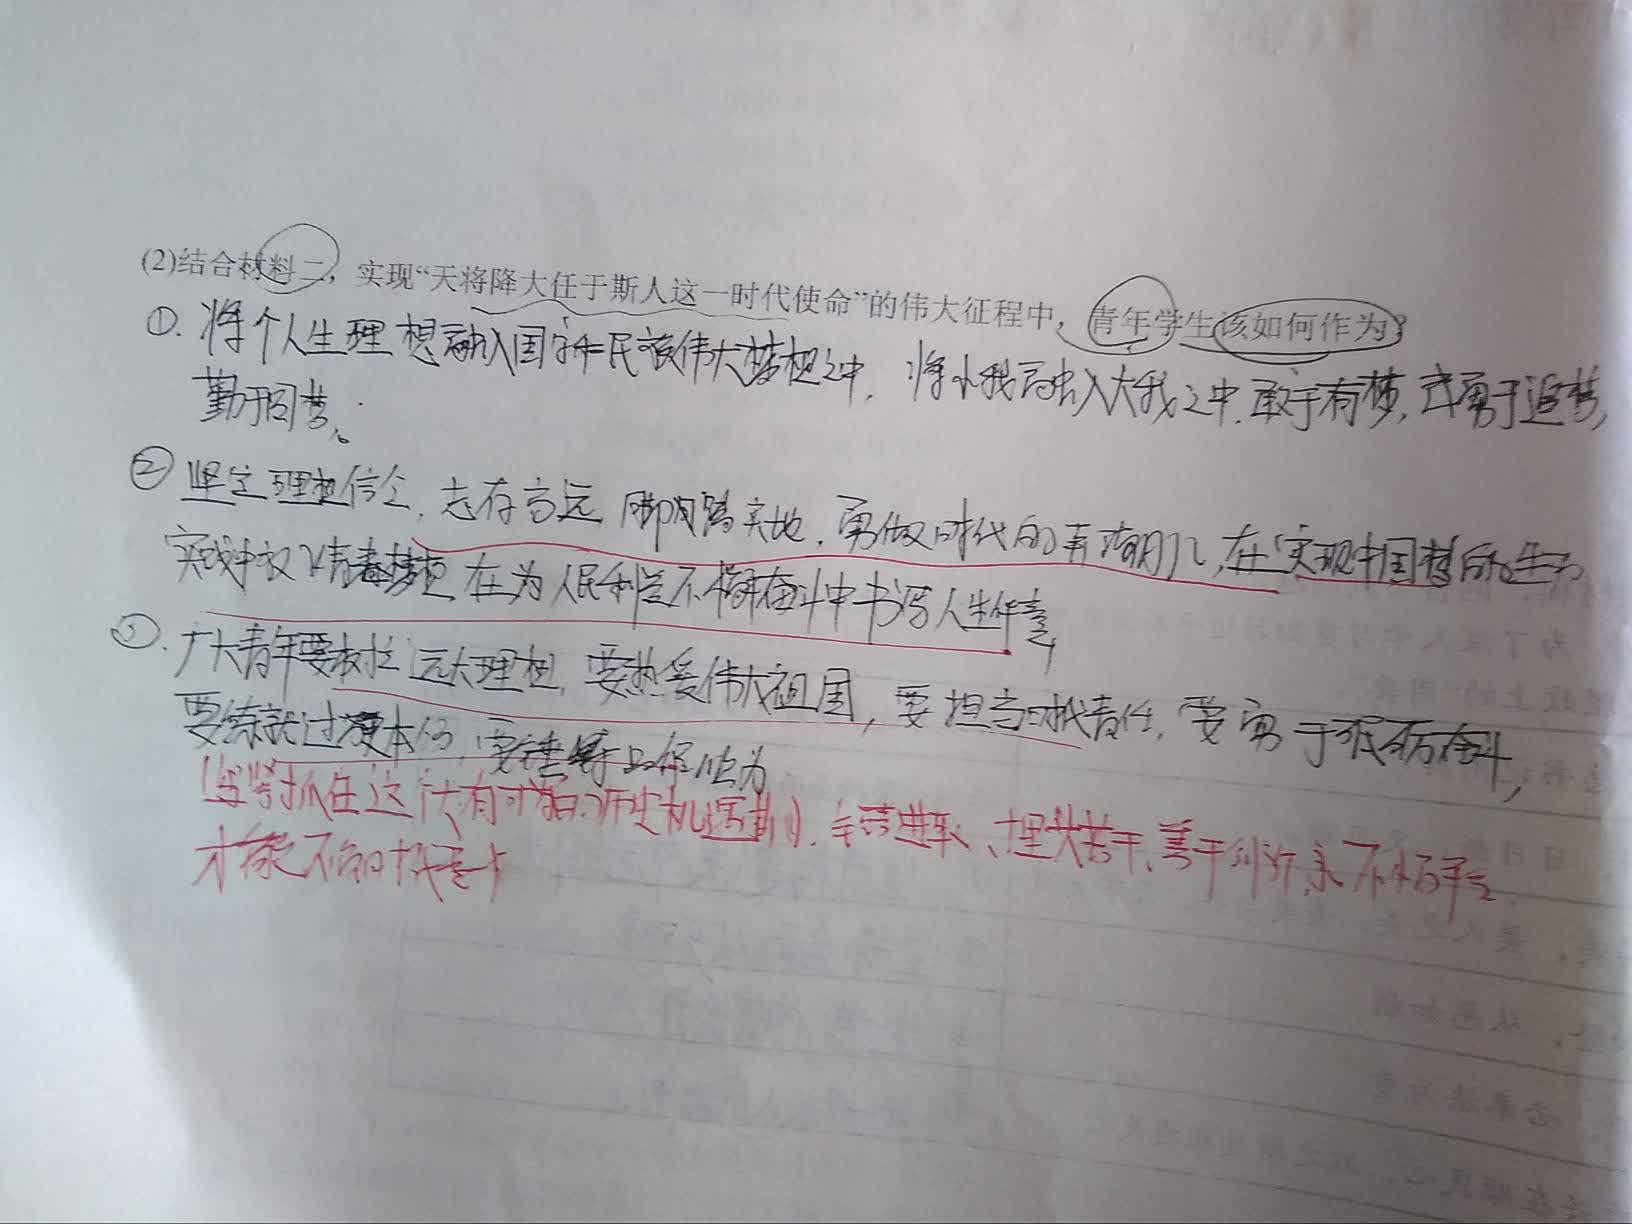 (2)结合材料二，实现“天将降大任于斯人这一时代使命”的伟大征程中，青年学生该如何作为？
①. 将个人生理想融入国家和民族伟大梦想之中，将小我融入大我之中，敢于有梦，勇于追梦，
勤于圆梦。
② 坚定理想信念，志存高远，脚踏实地，勇做时代的弄潮儿，在实现中国梦的生动
实践中放飞青春梦想 在为人民利益不懈奋斗中书写人生华章
③. 广大青年要树立远大理想，要热爱伟大祖国，要担当时代责任，要勇于砥砺奋斗，
要练就过硬本领，要锤炼品德修为
紧抓住这个大有可为的历史机遇期，锐意进取、埋头苦干、善于创新，永不